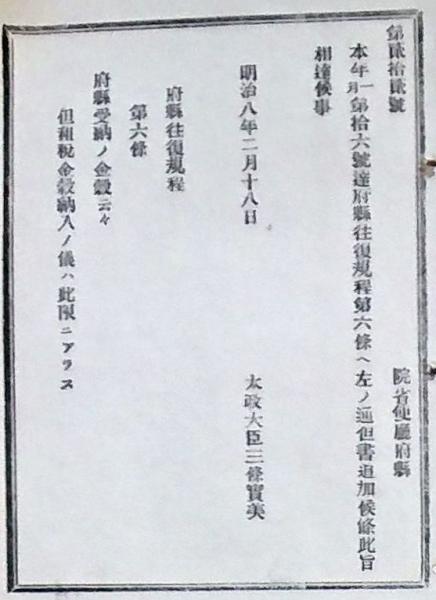 第貳拾貳號
院省使廳府縣
本年一月第拾六號達府縣往復規程第六條ヘ左ノ通但書追加候條此旨
相達候事
明治八年二月十八日
太政大臣三條實美
府縣往復規程
第六條
府縣受納ノ金穀云々
但租税金穀納入ノ儀ハ此限ニアラス